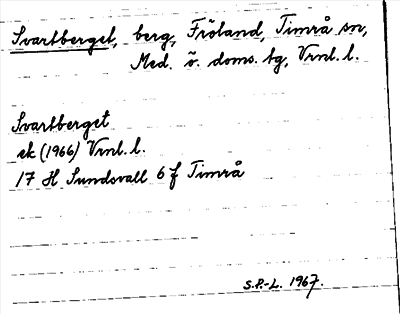 Svartberget, berg, Fröland, Timrå sn,
Med. ö. doms. tg, Vrnl. l.
Svartberget
ek (1966) Vrnl. l.
17 H Sundsvall 6 f Timrå
S.P.-L. 1967.